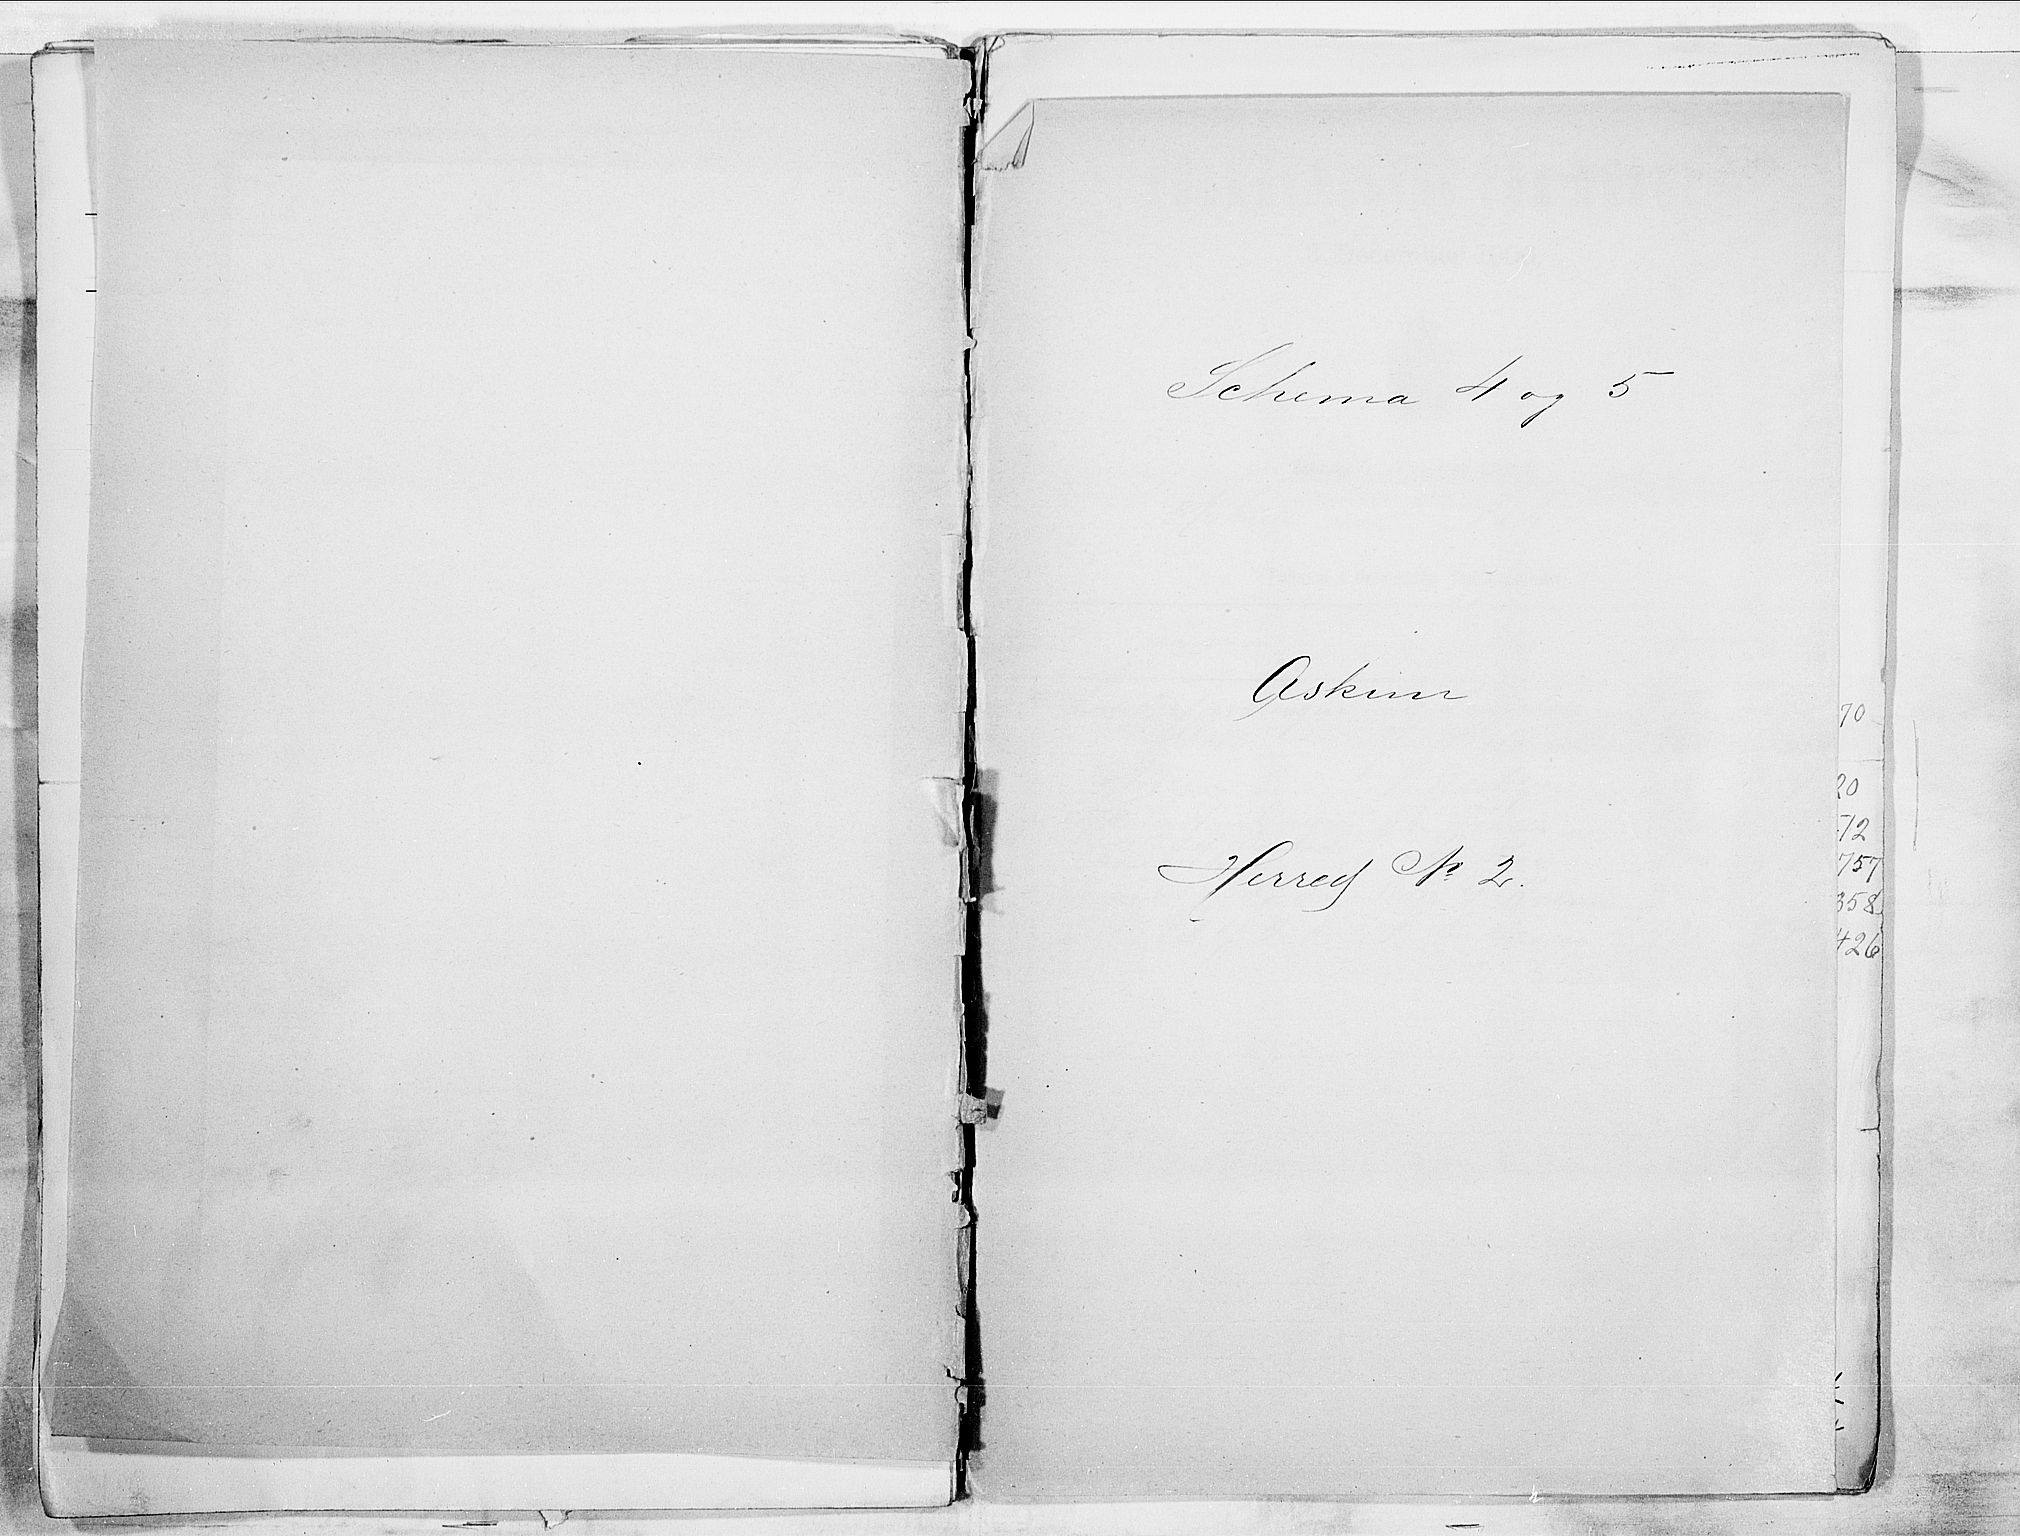 Schema 4 og 5
Askim
Herred No 2.
70
20
72
757
358
426